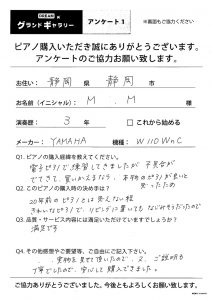 DREAM × グランドギャラリー アンケート1 ※裏面もご協力ください
ピアノ購入いただき誠にありがとうございます。
アンケートのご協力お願い致します。
お住い： 静岡 県 静岡 市
お名前（イニシャル）： M.M 様
演奏歴： 3 年 □ これから始める
メーカー： YAMAHA 機種： W110WnC
Q1. ピアノの購入経緯を教えてください。
電子ピアノで練習してきましたが 不具合が
でてきて、買いかえるなら、本物のピアノが良いと
思ったため
Q2. このピアノの購入時の決め手は？
20年前のピアノとは思えない程
きれいなピアノで、リビングに置いても なじみそうだったので
Q3. 品質・サービス内容にはご満足いただけていますでしょうか？
満足です
Q4. その他感想やご要望等、ご自由にご記入下さい。
実物を見せて頂いたので、又、ご説明も
丁寧でしたので、安心して購入できました。
ご協力ありがとうございました。今後ともよろしくお願い致します。